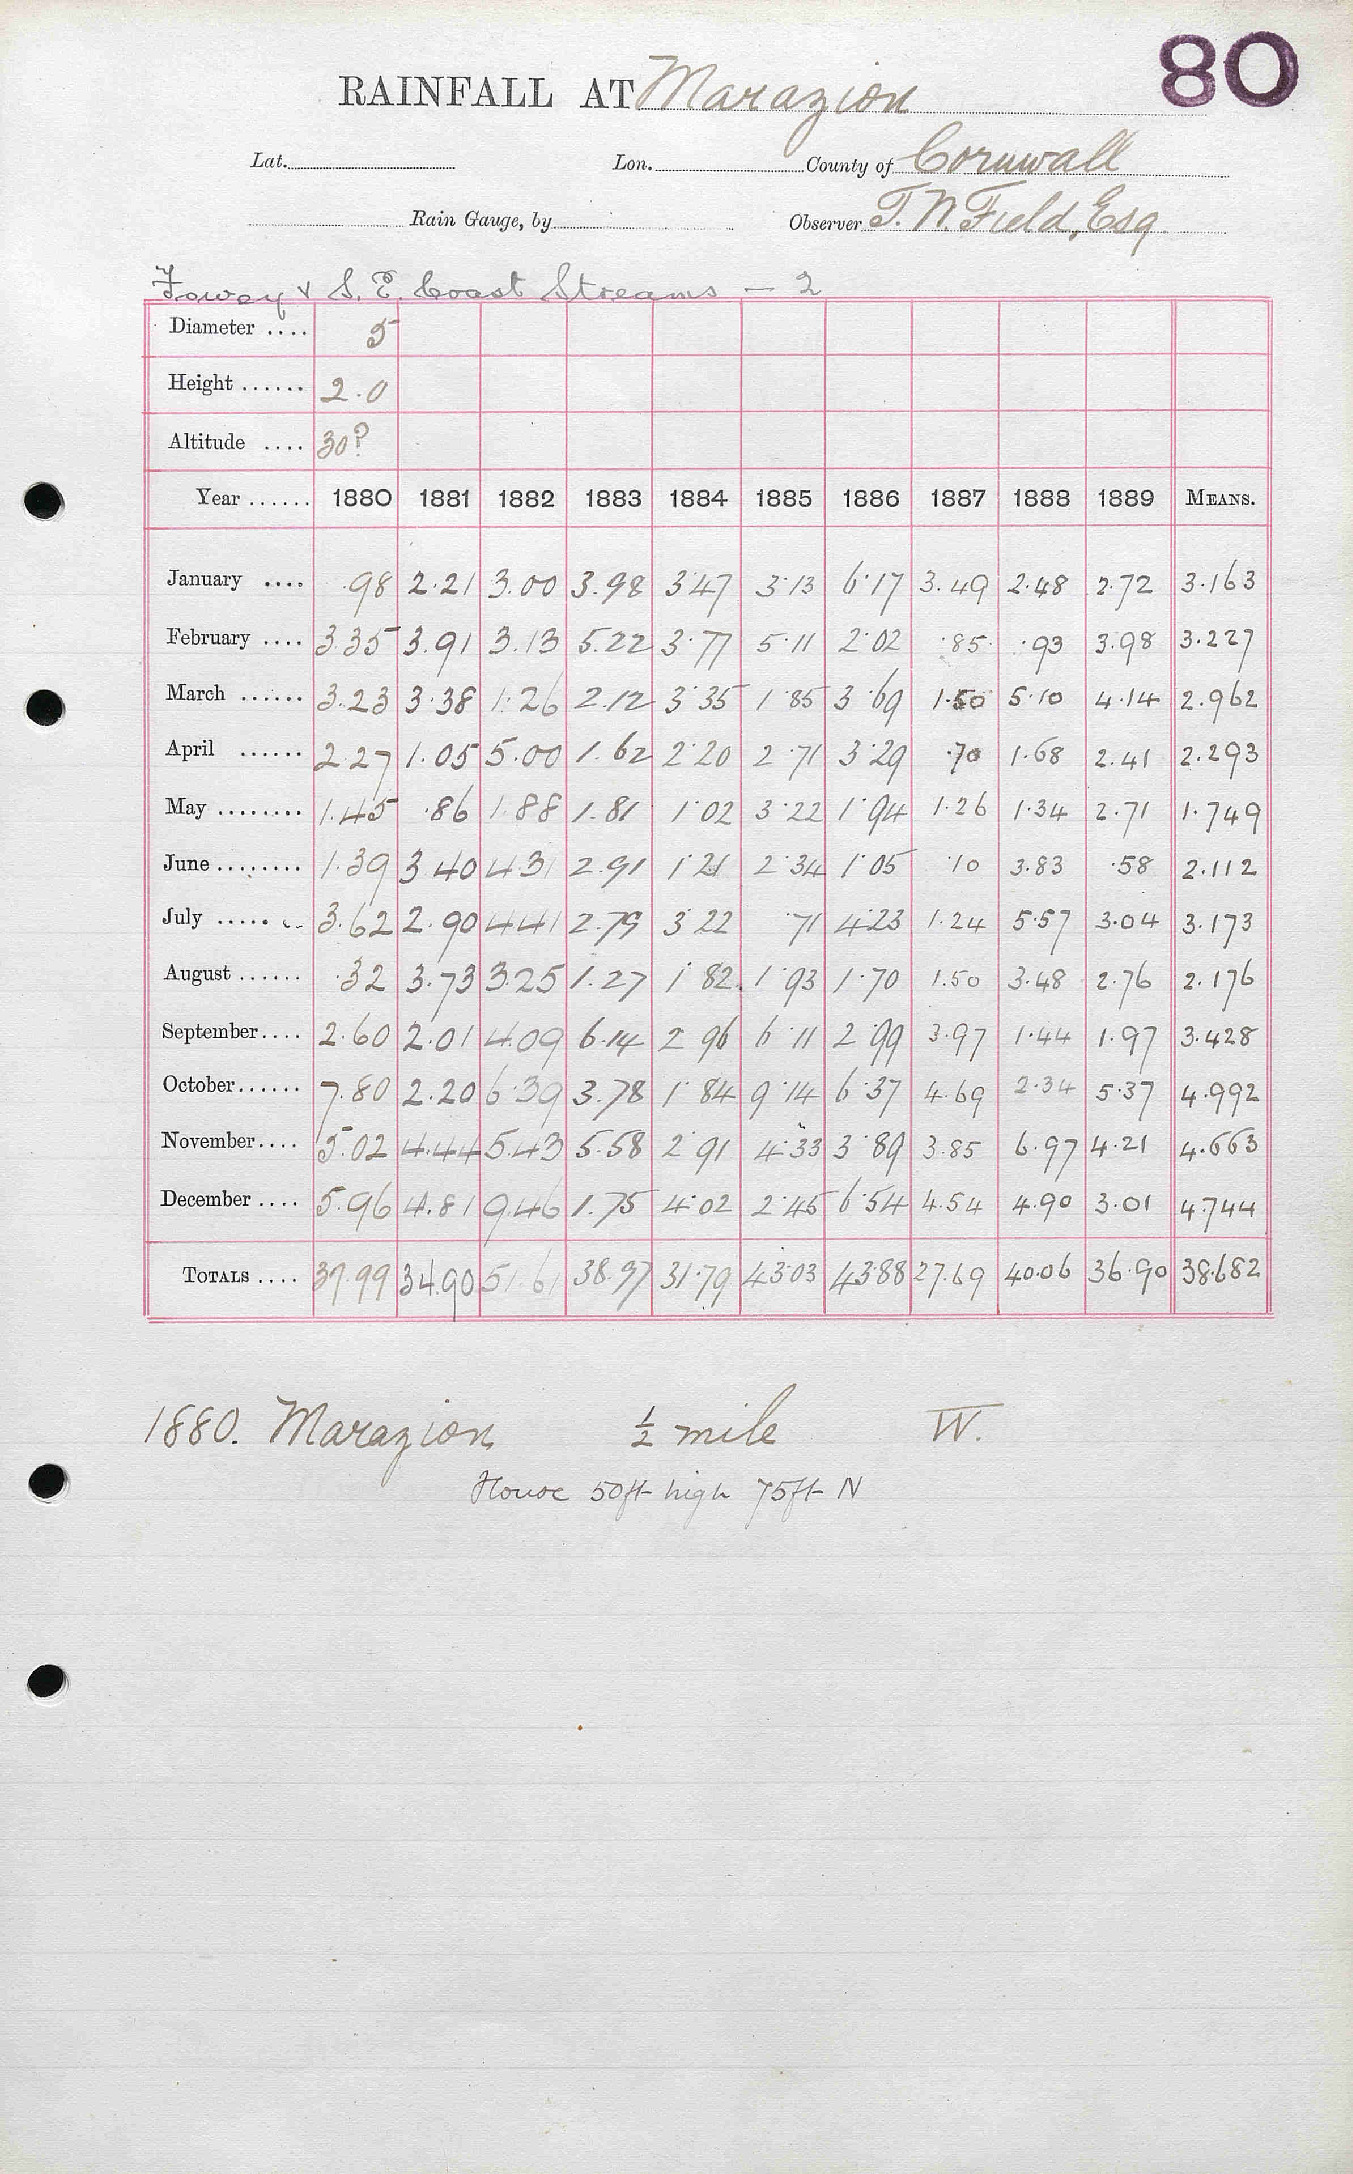 80
RAINFALL AT Marazion
Lat. Lon. County of Cornwall
Rain Gauge, by Observer T. N. Field, Esq
Fowey & S. E. Coast Streams – 2
Diameter .... 5
Height ...... 2.0
Altitude .... 30?
Year ...... 1880 1881 1882 1883 1884 1885 1886 1887 1888 1889 MEANS.
January .... .98 2.21 3.00 3.98 3.47 3.13 6.17 3.49 2.48 2.72 3.163
February .... 3.35 3.91 3.13 5.22 3.77 5.11 2.02 .85 .93 3.98 3.227
March ...... 3.23 3.38 1.26 2.12 3.35 1.85 3.69 1.50 5.10 4.14 2.962
April ...... 2.27 1.05 5.00 1.62 2.20 2.71 3.29 .70 1.68 2.41 2.293
May ........ 1.45 .86 1.88 1.81 1.02 3.22 1.94 1.26 1.34 2.71 1.749
June ........ 1.39 3.40 4.31 2.91 1.21 2.34 1.05 .10 3.83 .58 2.112
July ..... 3.62 2.90 4.41 2.79 3.22 .71 4.23 1.24 5.57 3.04 3.173
August ...... .32 3.73 3.25 1.27 1.82 1.93 1.70 1.50 3.48 2.76 2.176
September.... 2.60 2.01 4.09 6.14 2.96 6.11 2.99 3.97 1.44 1.97 3.428
October...... 7.80 2.20 6.39 3.78 1.84 9.14 6.37 4.69 2.34 5.37 4.992
November.... 5.02 4.44 5.43 5.58 2.91 4.33 3.89 3.85 6.97 4.21 4.663
December .... 5.96 4.81 9.46 1.75 4.02 2.45 6.54 4.54 4.90 3.01 4.744
TOTALS .... 37.99 34.90 51.61 38.97 31.79 43.03 43.88 27.69 40.06 36.90 38.682
1880. Marazion ½ mile W.
House 50ft high 75ft N